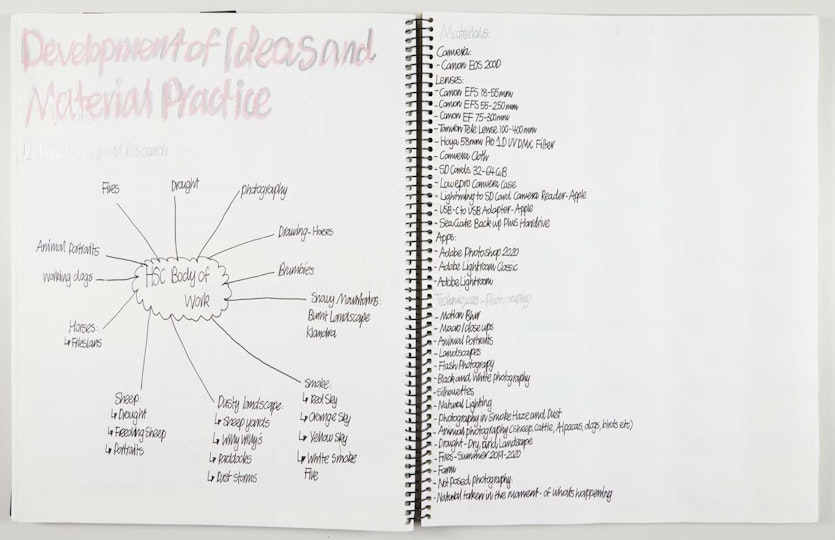 Development of Ideas and
Material Practice
and Research
Fires
Drought
photography
Drawing-Horses
Animal Portraits
Brumbies
Working dogs
HSC Body of
Work
Snowy Mountains:
Burnt Landscape
Kiandra
Horses:
↳ Friesians
Sheep:
↳ Drought
↳ Feeding Sheep
↳ Portraits
Dusty landscape:
↳ Sheep yards
↳ Willy Willy's
↳ Paddocks
↳ Dust storms
Smoke:
↳ Red Sky
↳ Orange Sky
↳ Yellow Sky
↳ White Smoke
Fire
Materials:
Camera:
- Canon EOS 200D
Lenses:
- Canon EFS 18-55mm
- Canon EFS 55-250mm
- Canon EF 75-300mm
- Tamron Tele Lense 100-400mm
- Hoya 58mm Pro 1D UV DMC Filter
- Camera Cloth
- SD Cards 32-64GB
- Lowepro Camera Case
- Lightning to SD Card Camera Reader-Apple
- USB-C to USB Adapter-Apple
- SeaGate Back up Plus Hardrive
Apps:
- Adobe Photoshop 2020
- Adobe Lightroom Classic
- Adobe Lightroom
Techniques - Photography:
- Motion Blur
- Macro/close ups
- Animal Portraits
- Landscapes
- Flash Photograpy
- Black and White photography
- Silhouettes
- Natural Lighting
- Photography in Smoke Haze and Dust
- Animal photography (sheep, cattle, Alpacas, dogs, birds etc)
- Drought - Dry, arid, Landscape
- Fires - Summer 2019-2020
- Farm
- Not posed photography
- Natural taken in the moment - of whats happening